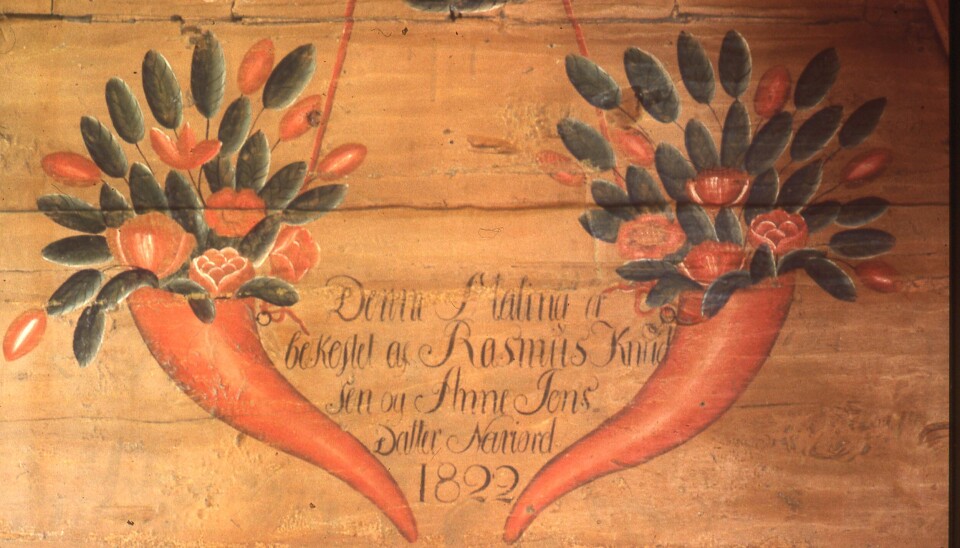 Denne Maling er
bekostet af Rasmus Knud
sen og Anne Jons
Datter Naviord
1822